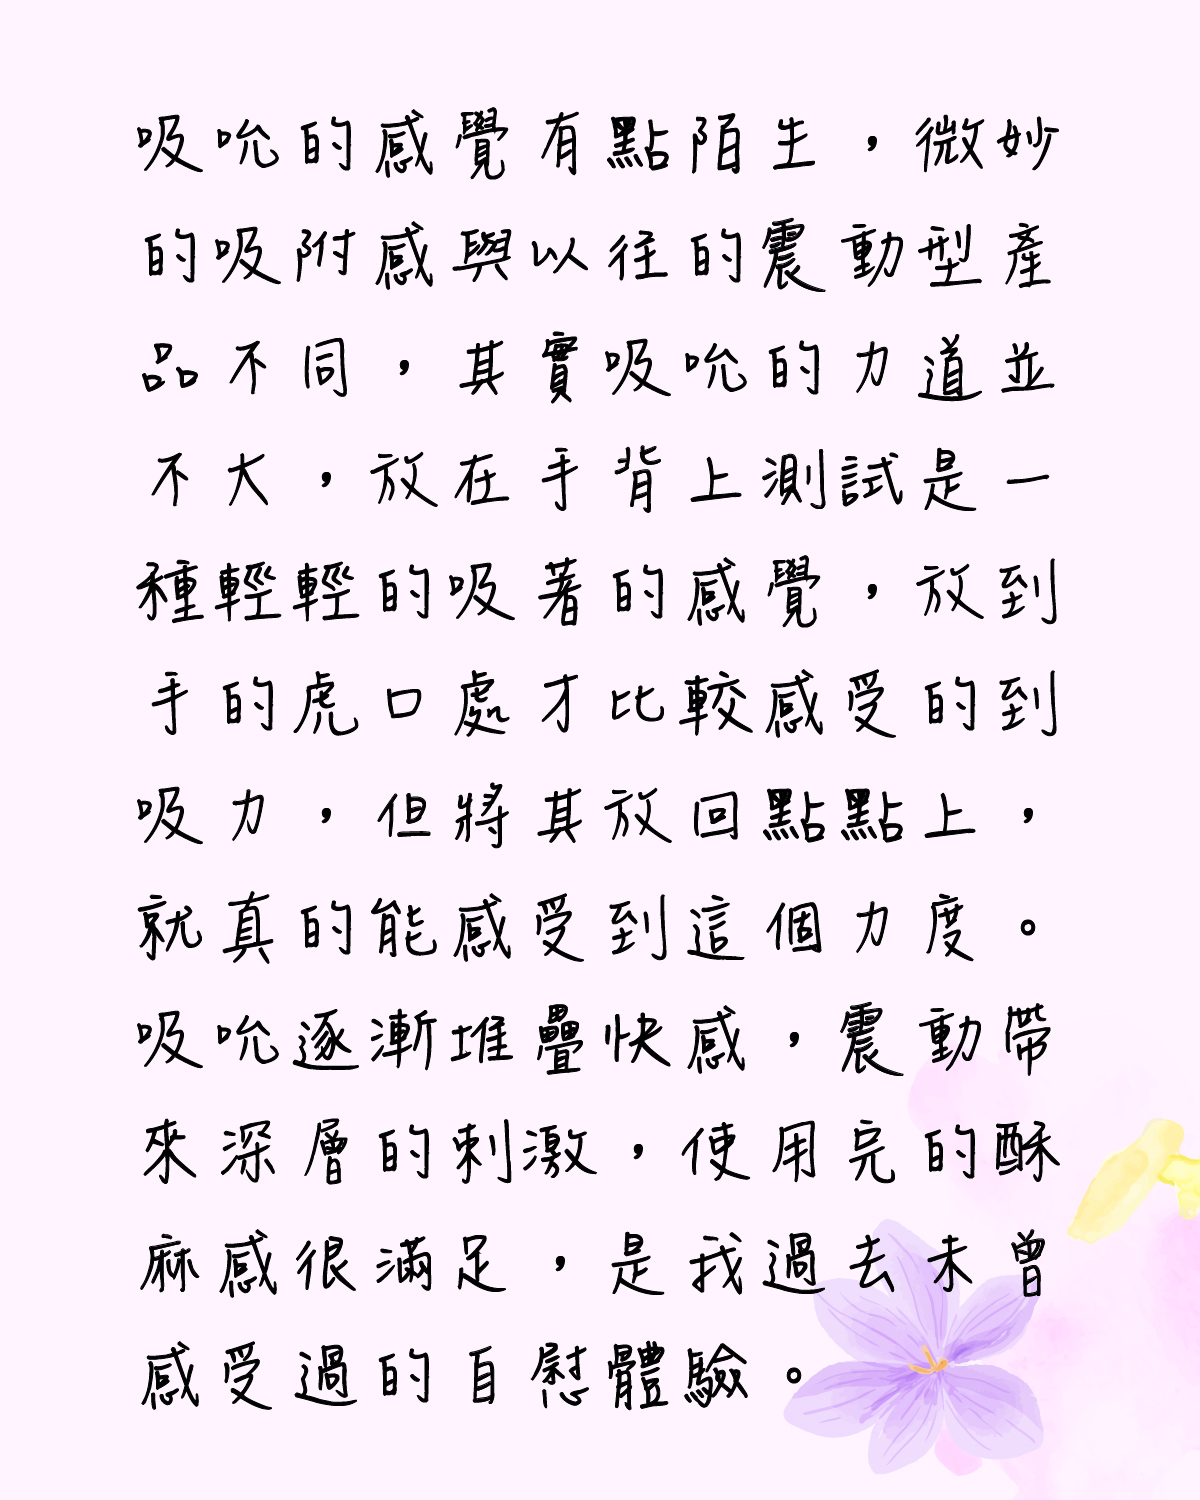 吸吮的感覺有點陌生，微妙
的吸附感與以往的震動型產
品不同，其實吸吮的力道並
不大，放在手背上測試是一
種輕輕的吸著的感覺，放到
手的虎口處才比較感受的到
吸力，但將其放回點點上，
就真的能感受到這個力度。
吸吮逐漸堆疊快感，震動帶
來深層的刺激，使用完的酥
麻感很滿足，是我過去未曾
感受過的自慰體驗。